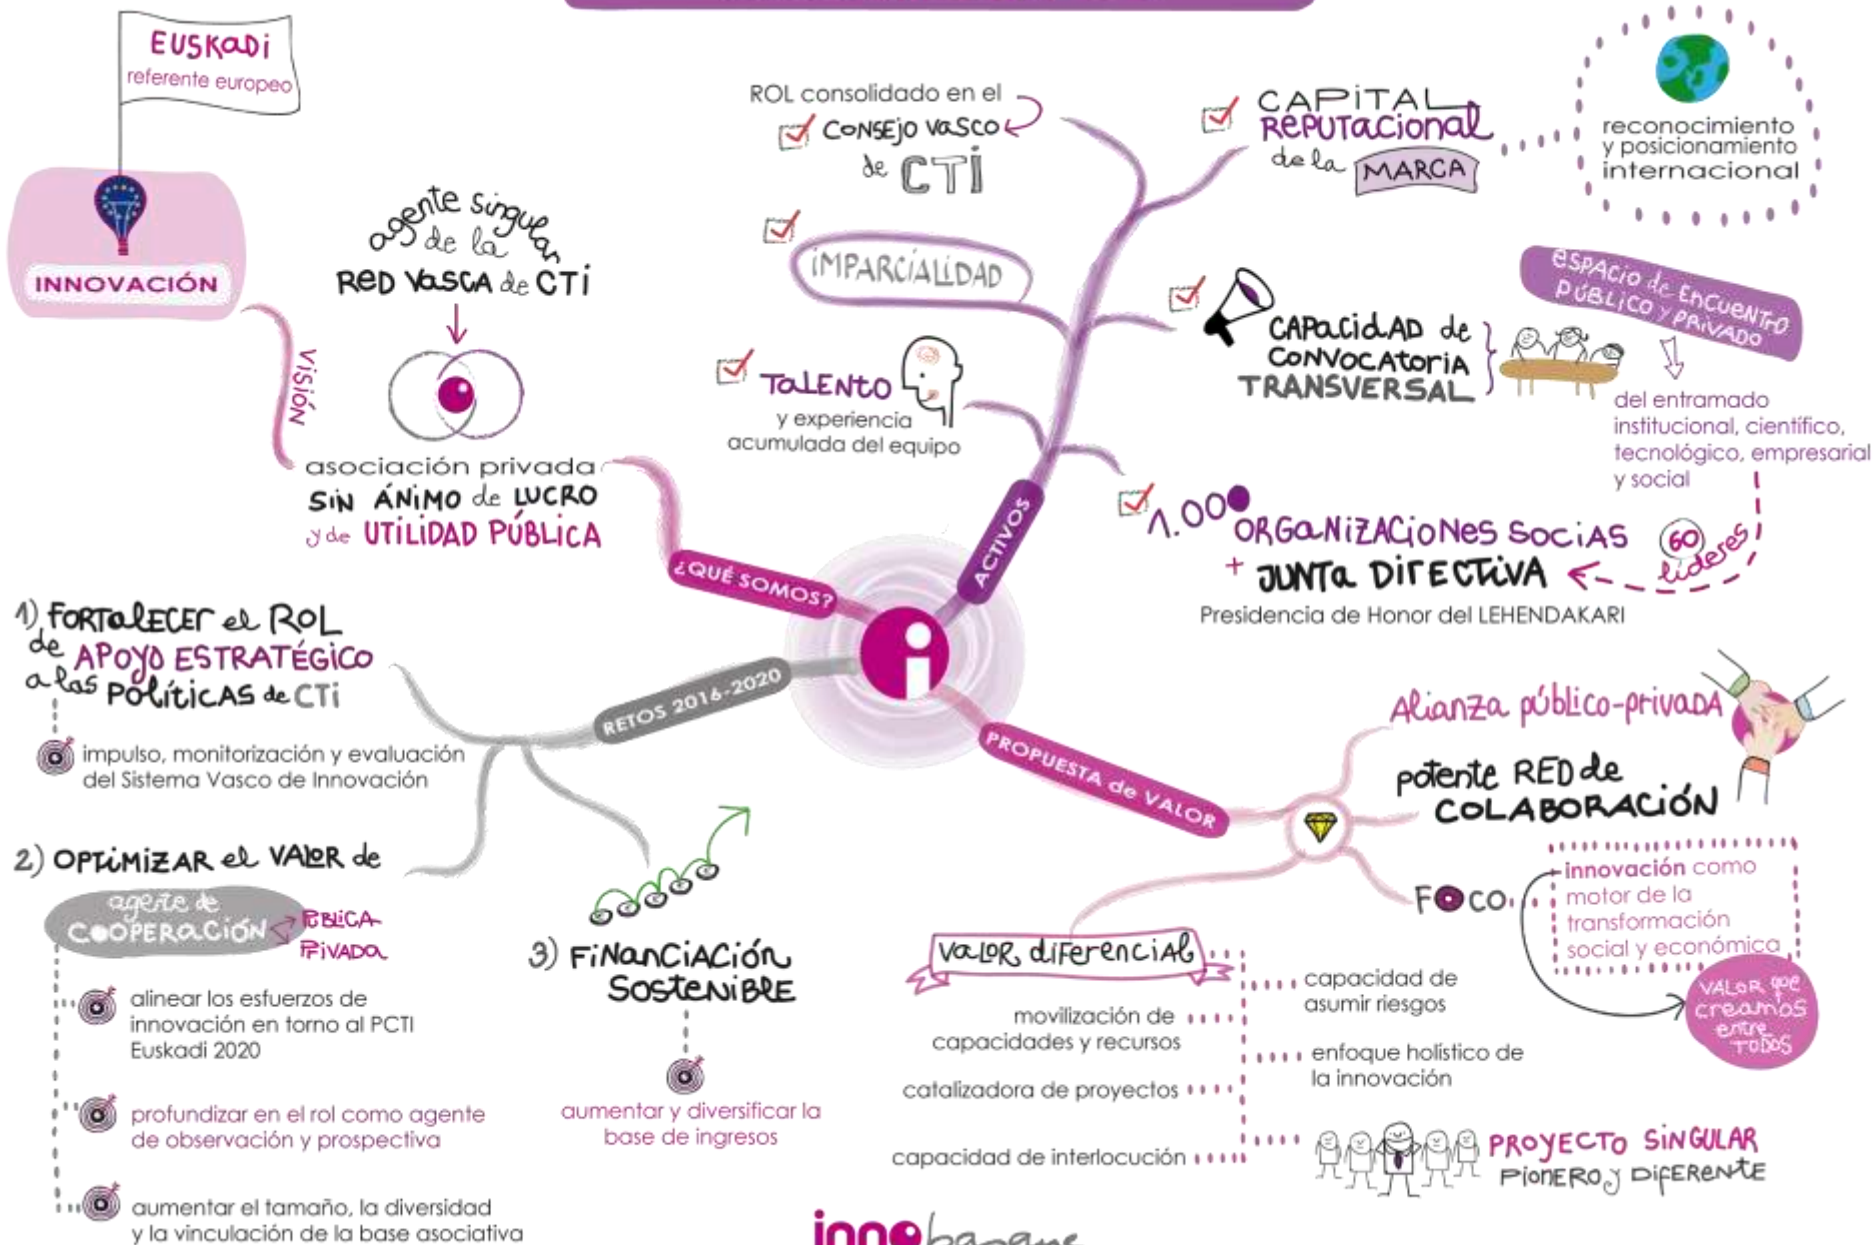 EUSKADI
referente europeo
INNOVACIÓN
VISIÓN
agente singular
de la
RED VASCA de CTI
asociación privada
SIN ÁNIMO de LUCRO
y de UTILIDAD PÚBLICA
¿QUÉ SOMOS?
ROL consolidado en el
CONSEJO VASCO
de CTI
IMPARCIALIDAD
TALENTO
y experiencia
acumulada del equipo
CAPITAL
REPUTACIONAL
de la MARCA
reconocimiento
y posicionamiento
internacional
CAPACIDAD de
CONVOCATORIA
TRANSVERSAL
ESPACIO de ENCUENTRO
PÚBLICO y PRIVADO
del entramado
institucional, científico,
tecnológico, empresarial
y social
1.000 ORGANIZACIONES SOCIAS
+ JUNTA DIRECTIVA
60
líderes
Presidencia de Honor del LEHENDAKARI
ACTIVOS
i
RETOS 2016-2020
1) FORTALECER el ROL
de APOYO ESTRATÉGICO
a las POLÍTICAS de CTI
impulso, monitorización y evaluación
del Sistema Vasco de Innovación
2) OPTIMIZAR el VALOR de
agente de
COOPERACIÓN
PÚBLICA
PRIVADA
alinear los esfuerzos de
innovación en torno al PCTI
Euskadi 2020
profundizar en el rol como agente
de observación y prospectiva
aumentar el tamaño, la diversidad
y la vinculación de la base asociativa
3) FINANCIACIÓN
SOSTENIBLE
aumentar y diversificar la
base de ingresos
PROPUESTA de VALOR
Alianza público-privada
potente RED de
COLABORACIÓN
FOCO
innovación como
motor de la
transformación
social y económica
VALOR que
creamos
entre
TODOS
VALOR diferencial
movilización de
capacidades y recursos
catalizadora de proyectos
capacidad de interlocución
capacidad de
asumir riesgos
enfoque holístico de
la innovación
PROYECTO SINGULAR
PIONERO y DIFERENTE
innobasque